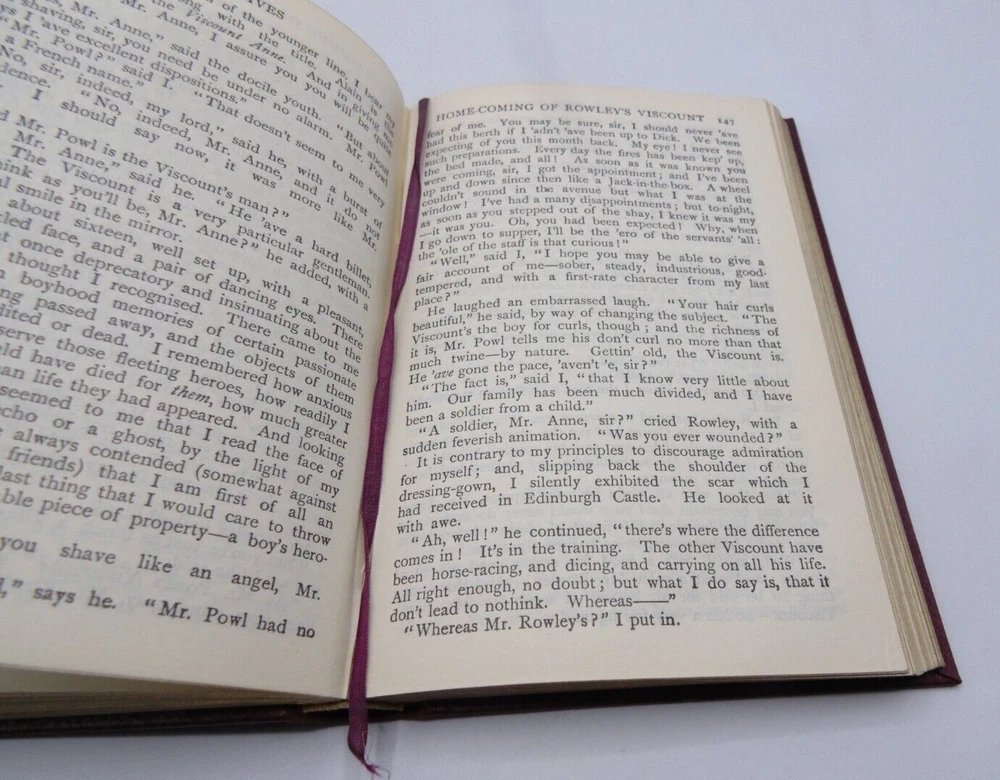 VES
of the younger
with the title. line, I
the Viscount Anne. And Alain bear
Mr. Anne, I assure you
es, Mr. Anne," said the docile youth. "But about
shaving, sir, you need be under no alarm. Mr. Powl
s I 'ave excellent dispositions."
"Mr. Powl?" said I. "That doesn't seem to me very
a French name."
"No, sir, indeed, my lord," said he, with a burst of
dence. "No, indeed, Mr. Anne, and it do not
I should say now, it was more like Mr.
d Mr. Powl is the Viscount's man?"
Mr. Anne," said he. "He 'ave a hard billet,
The Viscount is a very particular gentleman.
ink as you'll be, Mr. Anne?" he added, with a
l smile in the mirror.
about sixteen, well set up, with a pleasant,
led face, and a pair of dancing eyes. There
t once deprecatory and insinuating about the
thought I recognised. There came to me
boyhood memories of certain passionate
ng passed away, and the objects of them
dited or dead. I remembered how anxious
serve those fleeting heroes, how readily I
ld have died for them, how much greater
an life they had appeared. And looking
seemed to me that I read the face of
echo or a ghost, by the light of my
t always contended (somewhat against
friends) that I am first of all an
last thing that I would care to throw
able piece of property—a boy's hero-
you shave like an angel, Mr.
," says he. "Mr. Powl had no
HOME-COMING OF ROWLEY'S VISCOUNT 147
fear of me. You may be sure, sir, I should never 'ave
had this berth if I 'adn't 'ave been up to Dick. We been
expecting of you this month back. My eye! I never see
such preparations. Every day the fires has been kep' up,
the bed made, and all! As soon as it was known you
were coming, sir, I got the appointment; and I've been
up and down since then like a Jack-in-the-box. A wheel
couldn't sound in the avenue but what I was at the
window! I've had a many disappointments; but to-night,
as soon as you stepped out of the shay, I knew it was my
—it was you. Oh, you had been expected! Why, when
I go down to supper, I'll be the 'ero of the servants' 'all:
the 'ole of the staff is that curious!"
"Well," said I, "I hope you may be able to give a
fair account of me—sober, steady, industrious, good-
tempered, and with a first-rate character from my last
place?"
He laughed an embarrassed laugh. "Your hair curls
beautiful," he said, by way of changing the subject. "The
Viscount's the boy for curls, though; and the richness of
it is, Mr. Powl tells me his don't curl no more than that
much twine—by nature. Gettin' old, the Viscount is.
He 'ave gone the pace, 'aven't 'e, sir?"
"The fact is," said I, "that I know very little about
him. Our family has been much divided, and I have
been a soldier from a child."
"A soldier, Mr. Anne, sir?" cried Rowley, with a
sudden feverish animation. "Was you ever wounded?"
It is contrary to my principles to discourage admiration
for myself; and, slipping back the shoulder of the
dressing-gown, I silently exhibited the scar which I
had received in Edinburgh Castle. He looked at it
with awe.
"Ah, well!" he continued, "there's where the difference
comes in! It's in the training. The other Viscount have
been horse-racing, and dicing, and carrying on all his life.
All right enough, no doubt; but what I do say is, that it
don't lead to nothink. Whereas——"
"Whereas Mr. Rowley's?" I put in.